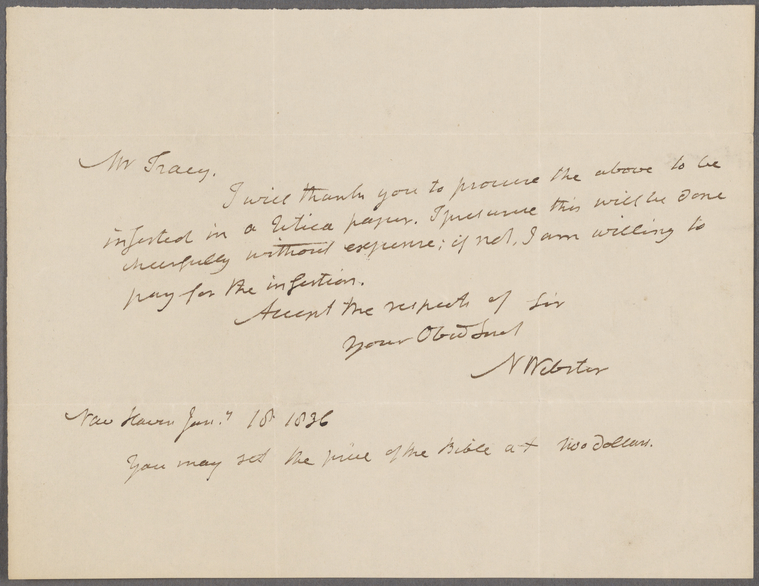 Mr Tracy.
I will thank you to procure the above to be
inserted in a Utica paper. I presume this will be done
cheerfully without expense; if not, I am willing to
pay for the insertion.
Accept the respects of Sir
your Obed Servt
N Webster
New Haven Jany 18 1836
You may set the price of the Bible at two dollars.